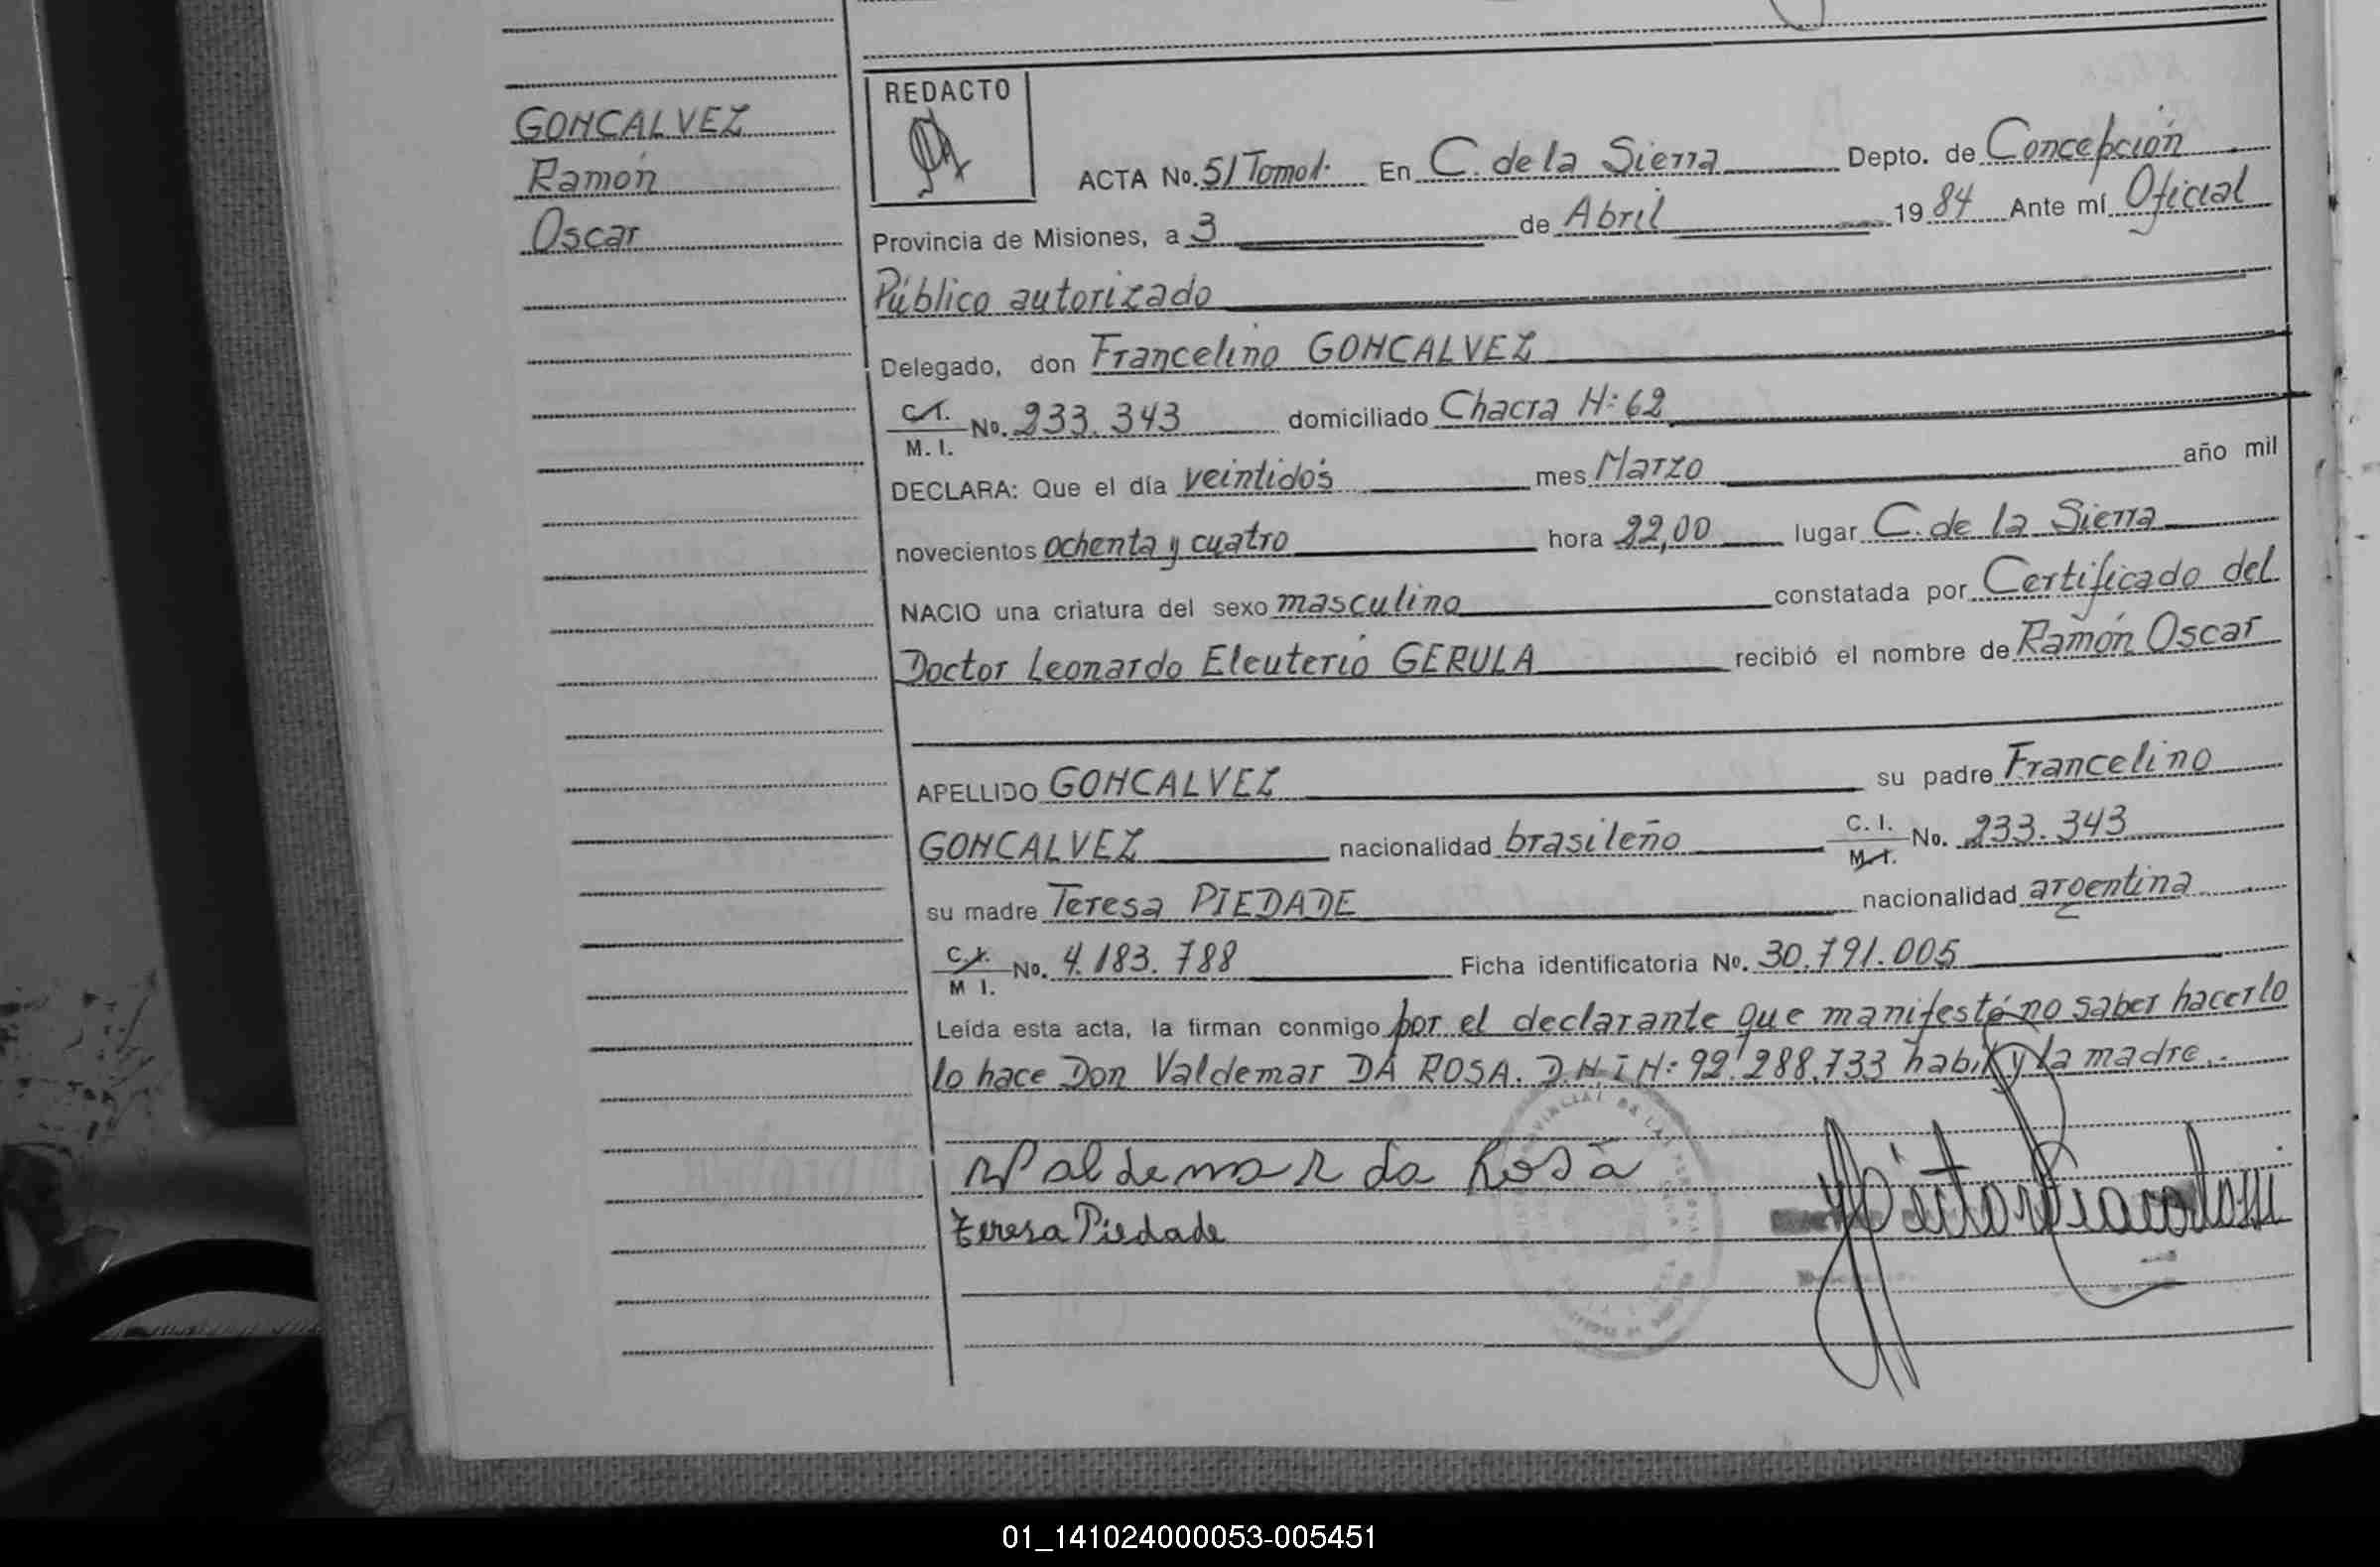 GONCALVEZ
Ramón
Oscar
REDACTO
ACTA No. 51 Tomo I. En C. de la Sierra Depto. de Concepción
Provincia de Misiones, a 3 de Abril 19 84 Ante mí Oficial
Público autorizado
Delegado, don Francelino GONCALVEZ
C. I. M. I. No. 233.343 domiciliado Chacra N: 62
DECLARA: Que el día veintidós mes Marzo año mil
novecientos ochenta y cuatro hora 22,00 lugar C. de la Sierra
NACIO una criatura del sexo masculino constatada por Certificado del
Doctor Leonardo Eleuterio GERULA recibió el nombre de Ramón Oscar
APELLIDO GONCALVEZ su padre Francelino
GONCALVEZ nacionalidad brasileño C. I. M. I. No. 233.343
su madre Teresa PIEDADE nacionalidad argentina
C. I. M I. No. 4.183.788 Ficha identificatoria No. 30.791.005
Leída esta acta, la firman conmigo por el declarante que manifestó no saber hacerlo
lo hace Don Valdemar DA ROSA. D.N.I N: 92.288.733 habil y la madre.-
Valdemar da Rosa
teresa Piedade
01_141024000053-005451